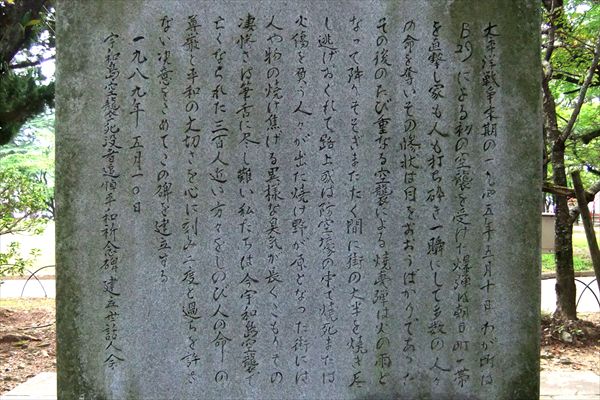 太平洋戦争末期の一九四五年五月十日わが町は
B29による初の空襲を受けた爆弾は朝日町一帯
を直撃し家も人も打ち砕き一瞬にして多数の人々
の命を奪いその惨状は目をおおうばかりであった
その後のたび重なる空襲による焼夷弾は火の雨と
なって降りそそぎまたたく間に街の大半を焼き尽
し逃げおくれて路上或は防空壕の中で焼死または
火傷を負う人々が出た焼け野が原となった街には
人や物の焼け焦げる異様な臭気が長くこもりその
凄惨さは筆舌に尽し難い私たちは今宇和島空襲で
亡くなられた三百人近い方々をしのび人の命の
尊厳と平和の大切さを心に刻み二度と過ちを許さ
ない決意をこめてこの碑を建立する
一九八九年五月一〇日
宇和島空襲死没者追悼平和祈念碑建立世話人会